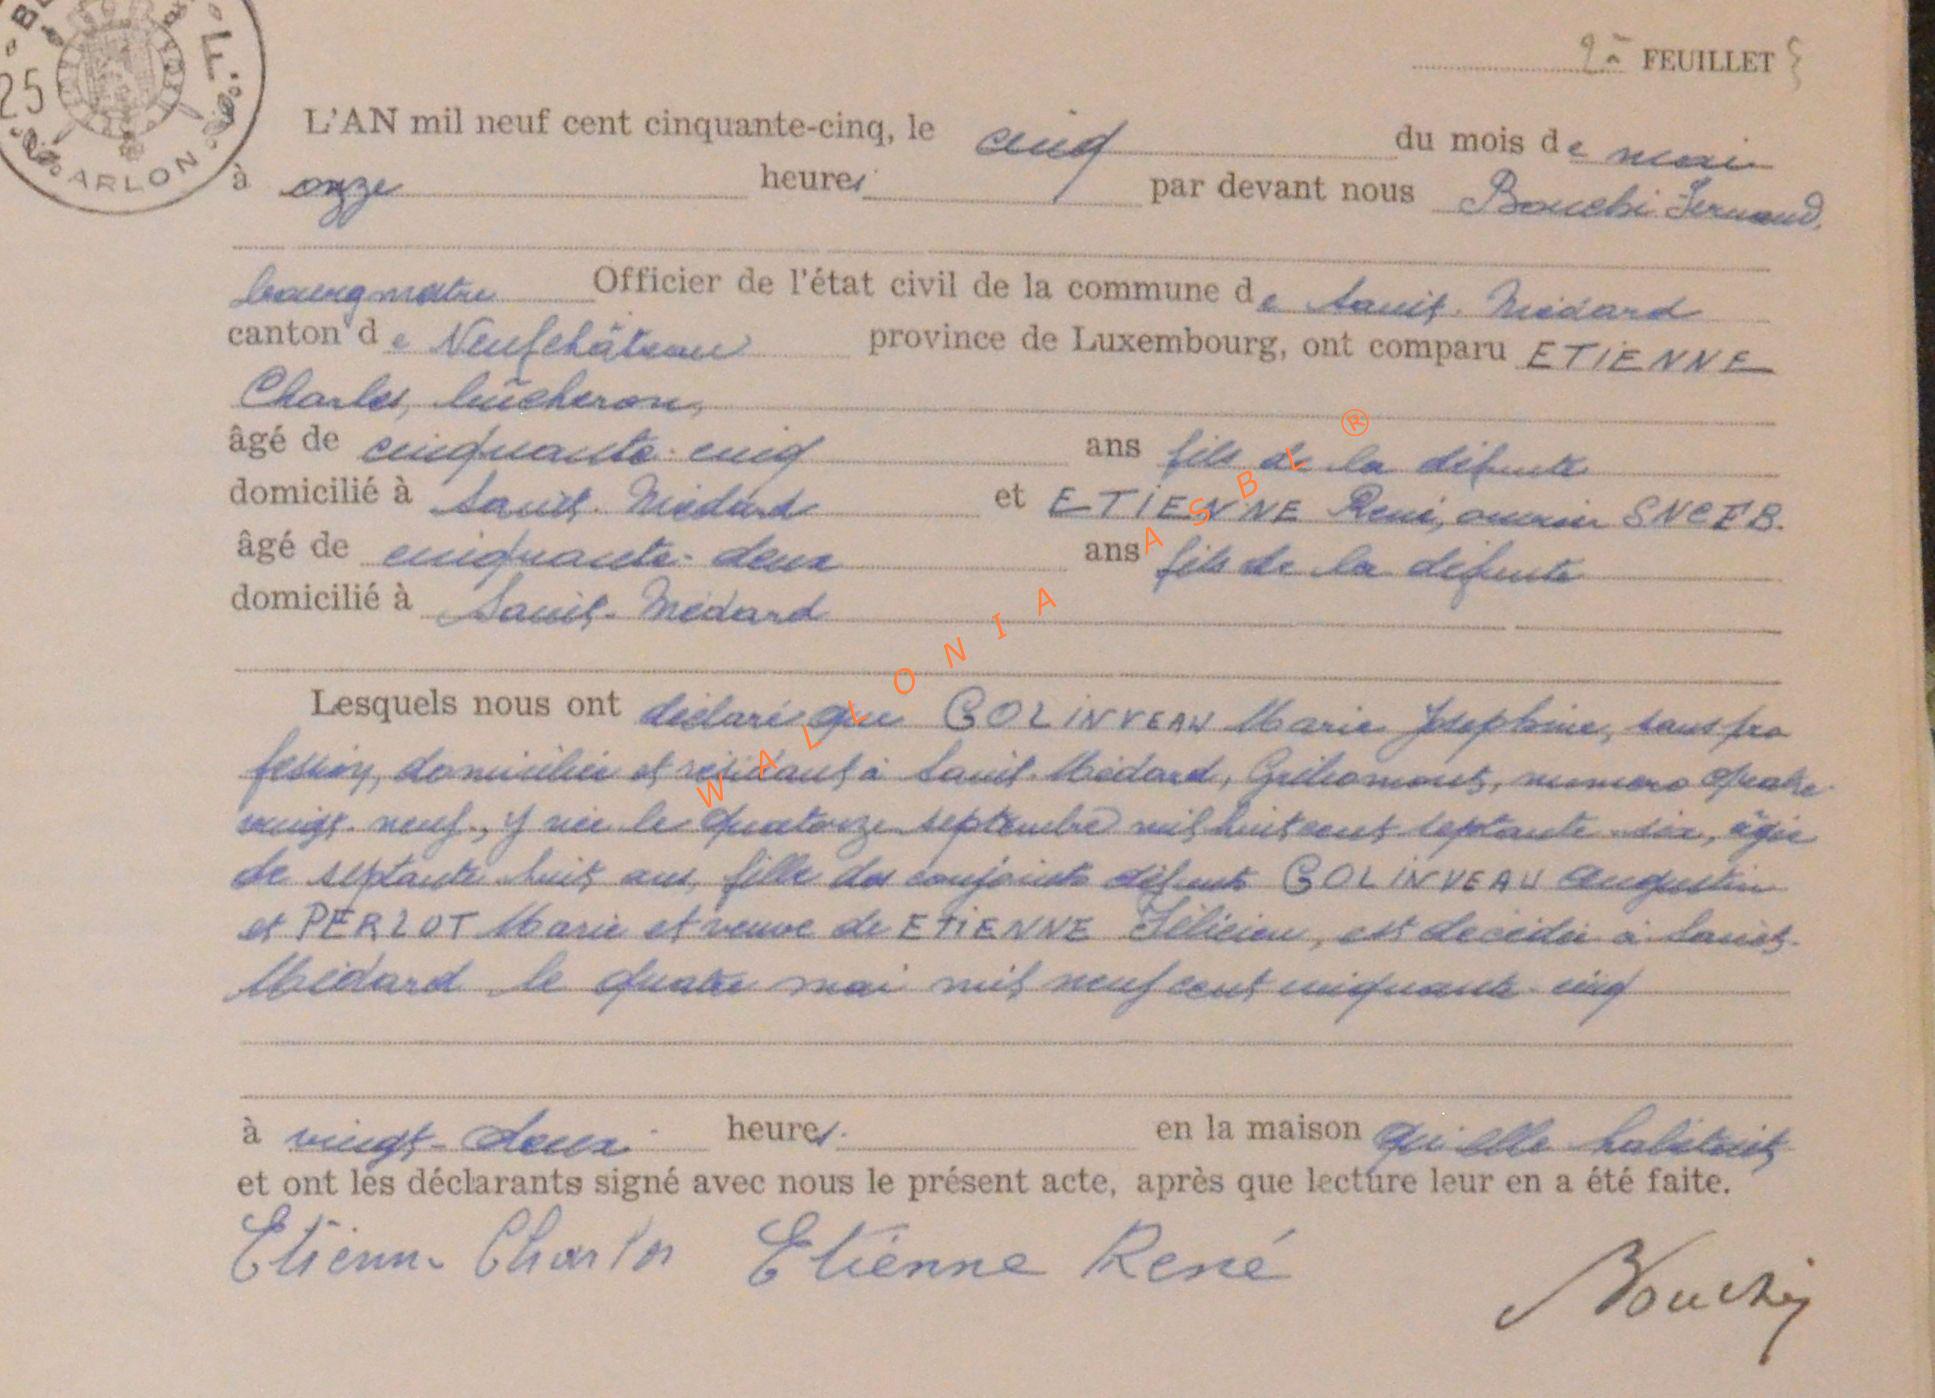 25
ARLON
2e FEUILLET
L'AN mil neuf cent cinquante-cinq, le cinq du mois de mai
à onze heures par devant nous Bouchi Fernand,
bourgmestre Officier de l'état civil de la commune de Saint-Médard
canton de Neufchâteau province de Luxembourg, ont comparu ETIENNE
Charles, bûcheron,
âgé de cinquante-cinq ans fils de la défunte
domicilié à Saint-Médard et ETIENNE René, ouvrier SNCFB.
âgé de cinquante-deux ans fils de la défunte
domicilié à Saint-Médard
Lesquels nous ont déclaré que GOLINVEAU Marie Joséphine, sans pro
fession, domiciliée et résidant à Saint-Médard, Gribomont, numéro quatre-
vingt-neuf, y née le quatorze septembre mil huit cent septante-six, âgée
de septante-huit ans, fille des conjoints défunts GOLINVEAU Augustin
et PERLOT Marie et veuve de ETIENNE Félicien, est décédée à Saint-
Médard le quatre mai mil neuf cent cinquante-cinq
à vingt-deux heures en la maison qu'elle habitait
et ont les déclarants signé avec nous le présent acte, après que lecture leur en a été faite.
Etienne Charles Etienne René
Bouchi
WALLONIA ASBL ®